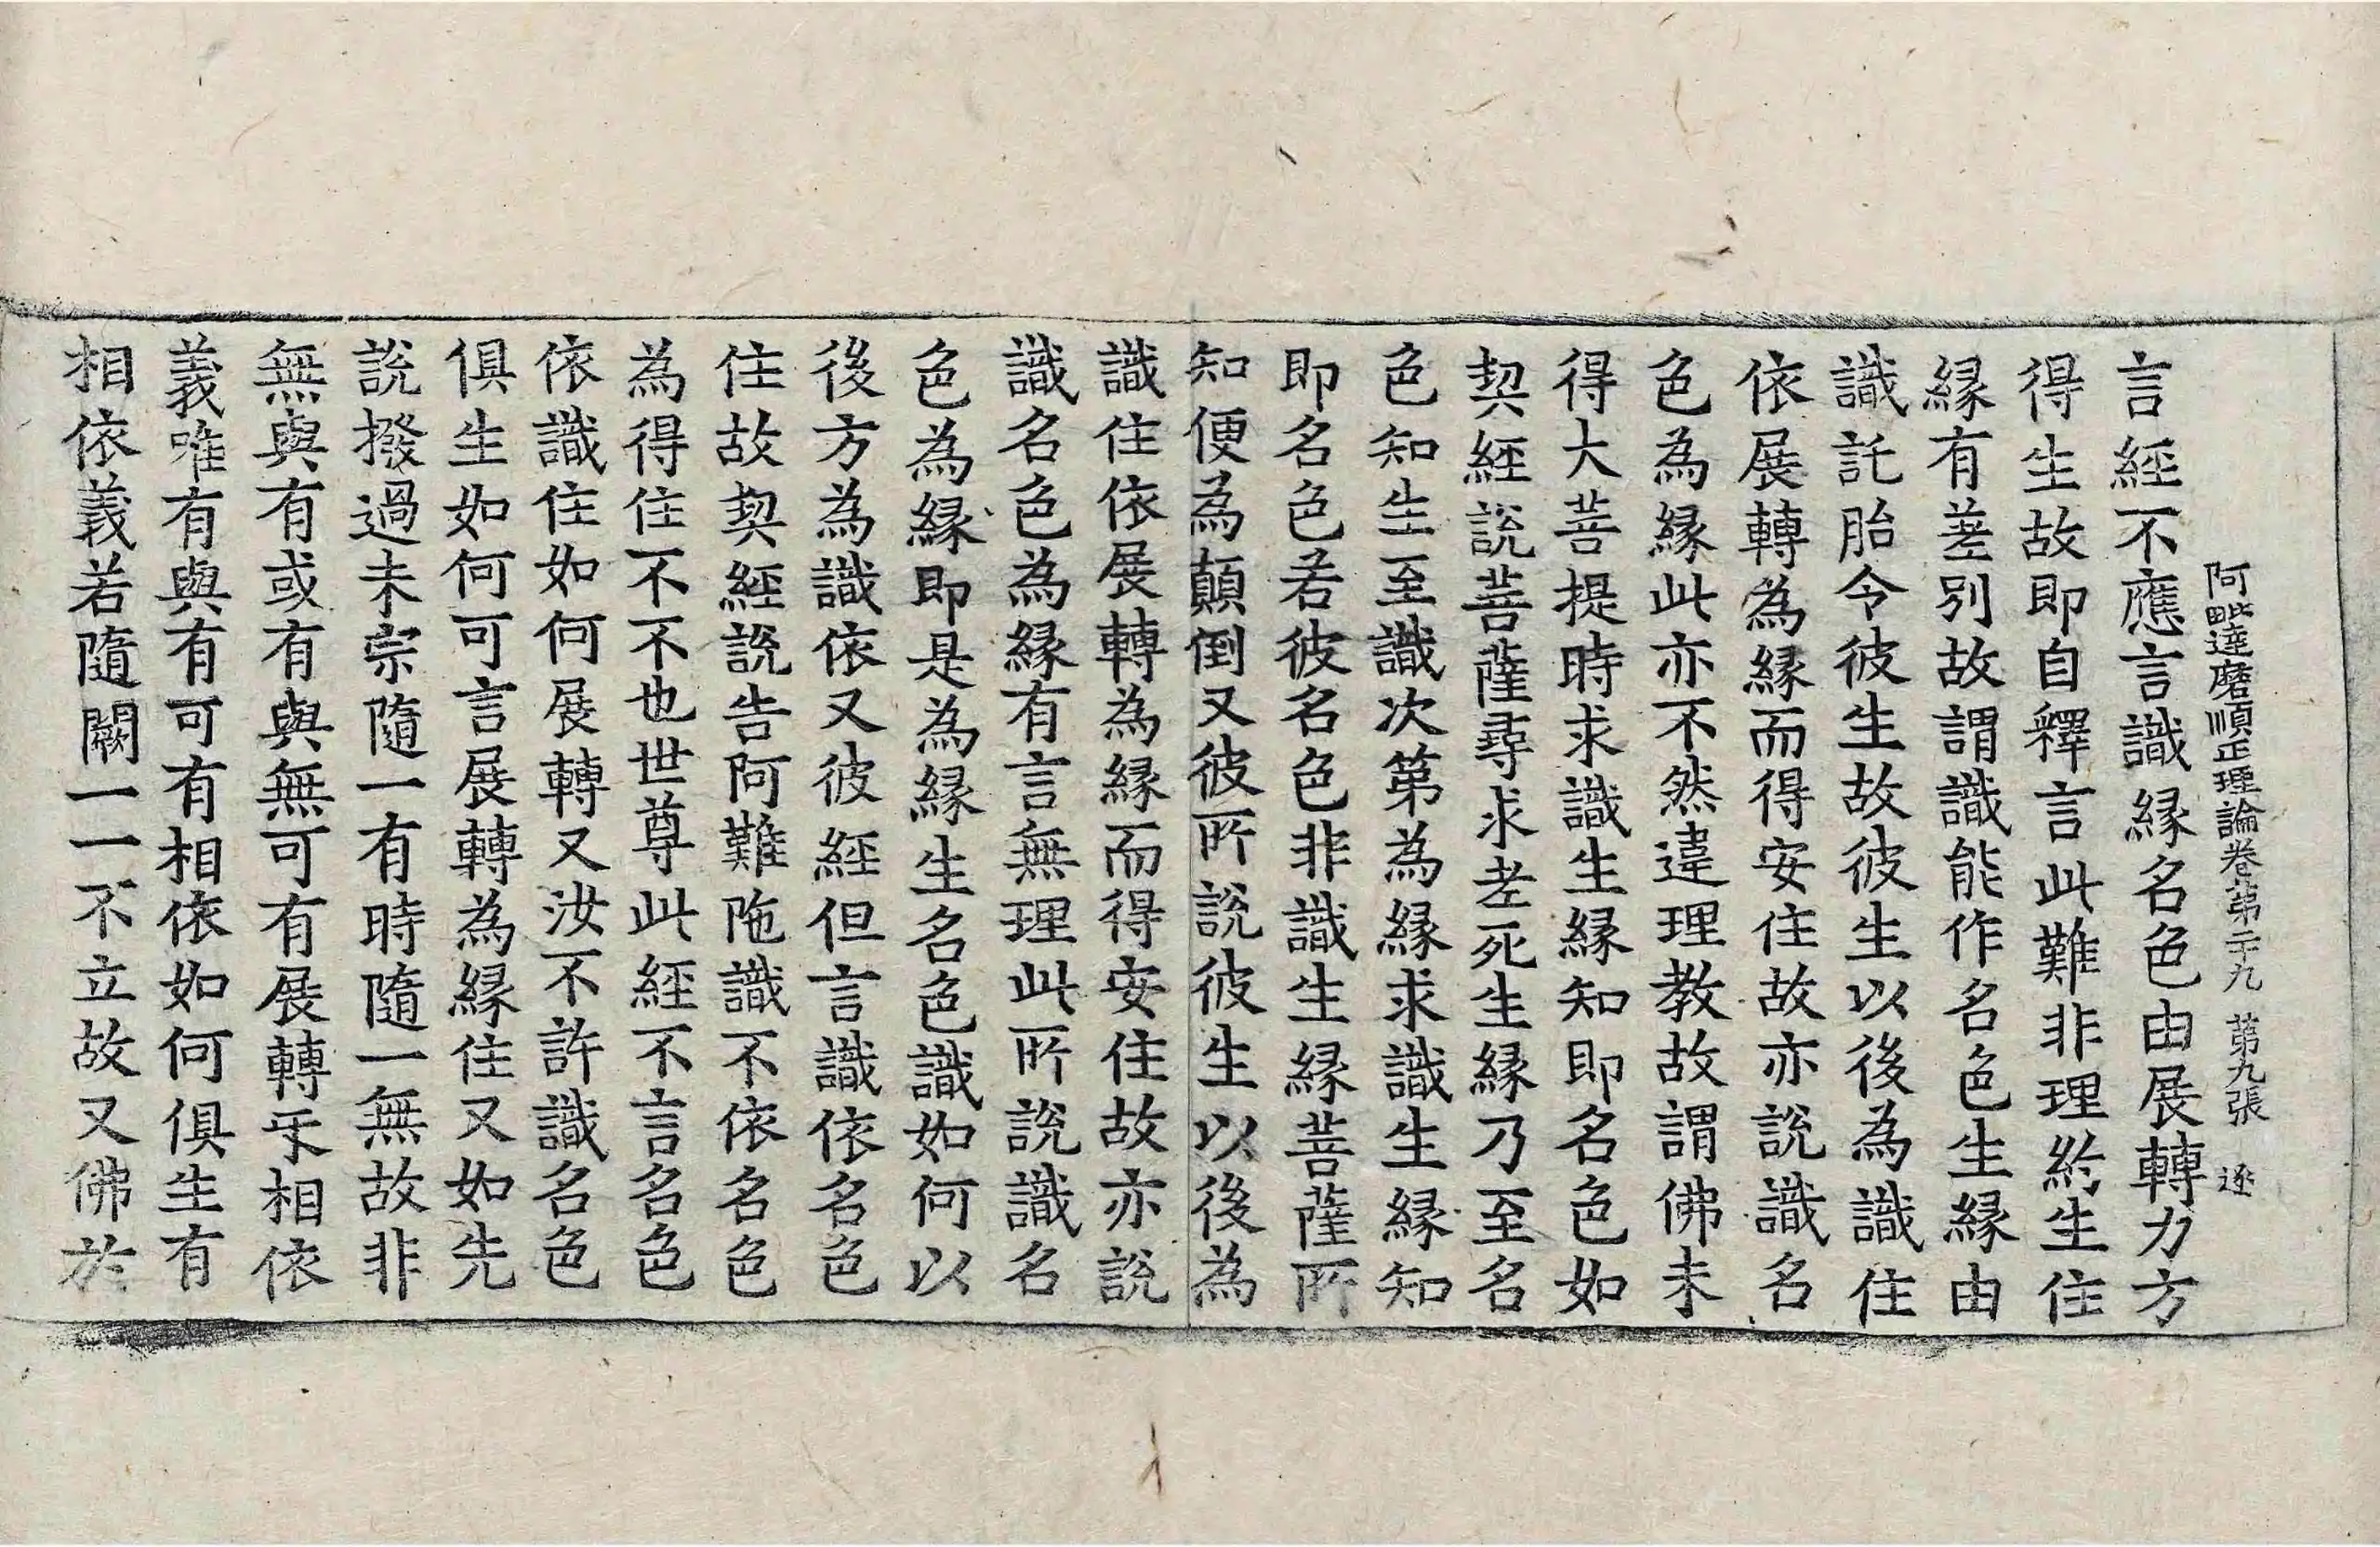 阿毗達磨順正理論卷第二十九 第九張 逐
言經不應言識緣名色由展轉力方
得生故即自釋言此難非理約生住
緣有差別故謂識能作名色生緣由
識託胎令彼生故彼生以後為識住
依展轉為緣而得安住故亦說識名
色為緣此亦不然違理教故謂佛未
得大菩提時求識生緣知即名色如
契經說菩薩尋求老死生緣乃至名
色知生至識次第為緣求識生緣知
即名色若彼名色非識生緣菩薩所
知便為顛倒又彼所說彼生以後為
識住依展轉為緣而得安住故亦說
識名色為緣有言無理此所說識名
色為緣即是為緣生名色識如何以
後方為識依又彼經但言識依名色
住故契經說告阿難陁識不依名色
為得住不不也世尊此經不言名色
依識住如何展轉又汝不許識名色
俱生如何可言展轉為緣住又如先
說撥過未宗隨一有時隨一無故非
無與有或有與無可有展轉㸦相依
義唯有與有可有相依如何俱生有
相依義若隨闕一一不立故又佛於